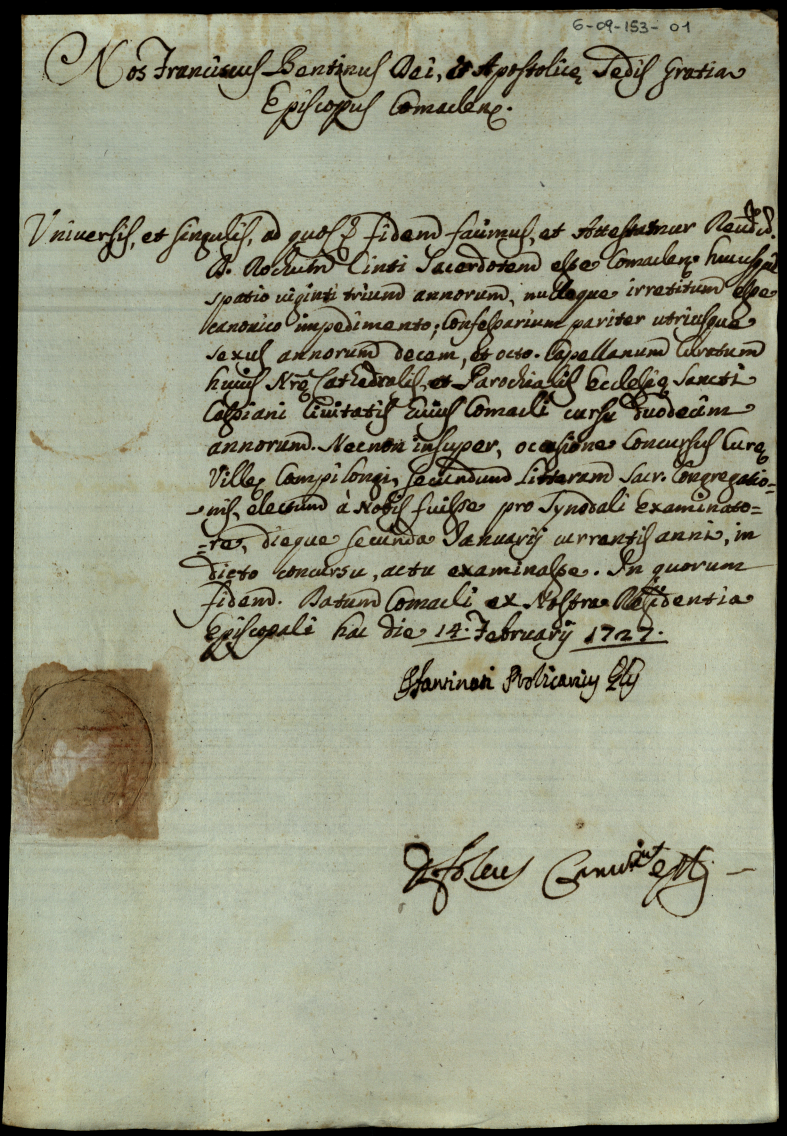 6-09-153-01
Nos Franciscus Bentinus Dei, et Apostolicę Sedis Gratia
Episcopus Comaclen.
Universis, et singulis, ad quos fidem facimus, et Attestamur Reud. D.
D. Rochum Cinti Sacerdotem esse Comaclen. huiusque
spatio viginti trium annorum, nulloque irretitum esse
canonico impedimento; Confessarium pariter utriusque
sexus annorum decem, et octo. Capellanum Curatum
huius Nrę Cathedralis, et Parochialis Ecclesię Sancti
Cassiani Civitatis huius Comacli cursu duodecim
annorum. Necnon insuper, occasione Concursus Curę
Villę Campi longi, secundum Litteram Sac. Congregatio=
nis, electum à Nobis fuisse pro Synodali Examinato=
=re, dieque secunda Januarij currentis anni, in
dicto concursu, actu examinasse. In quorum
fidem. Datum Comacli ex Nostra Residentia
Episcopali hac die 14. Februarij 1727.